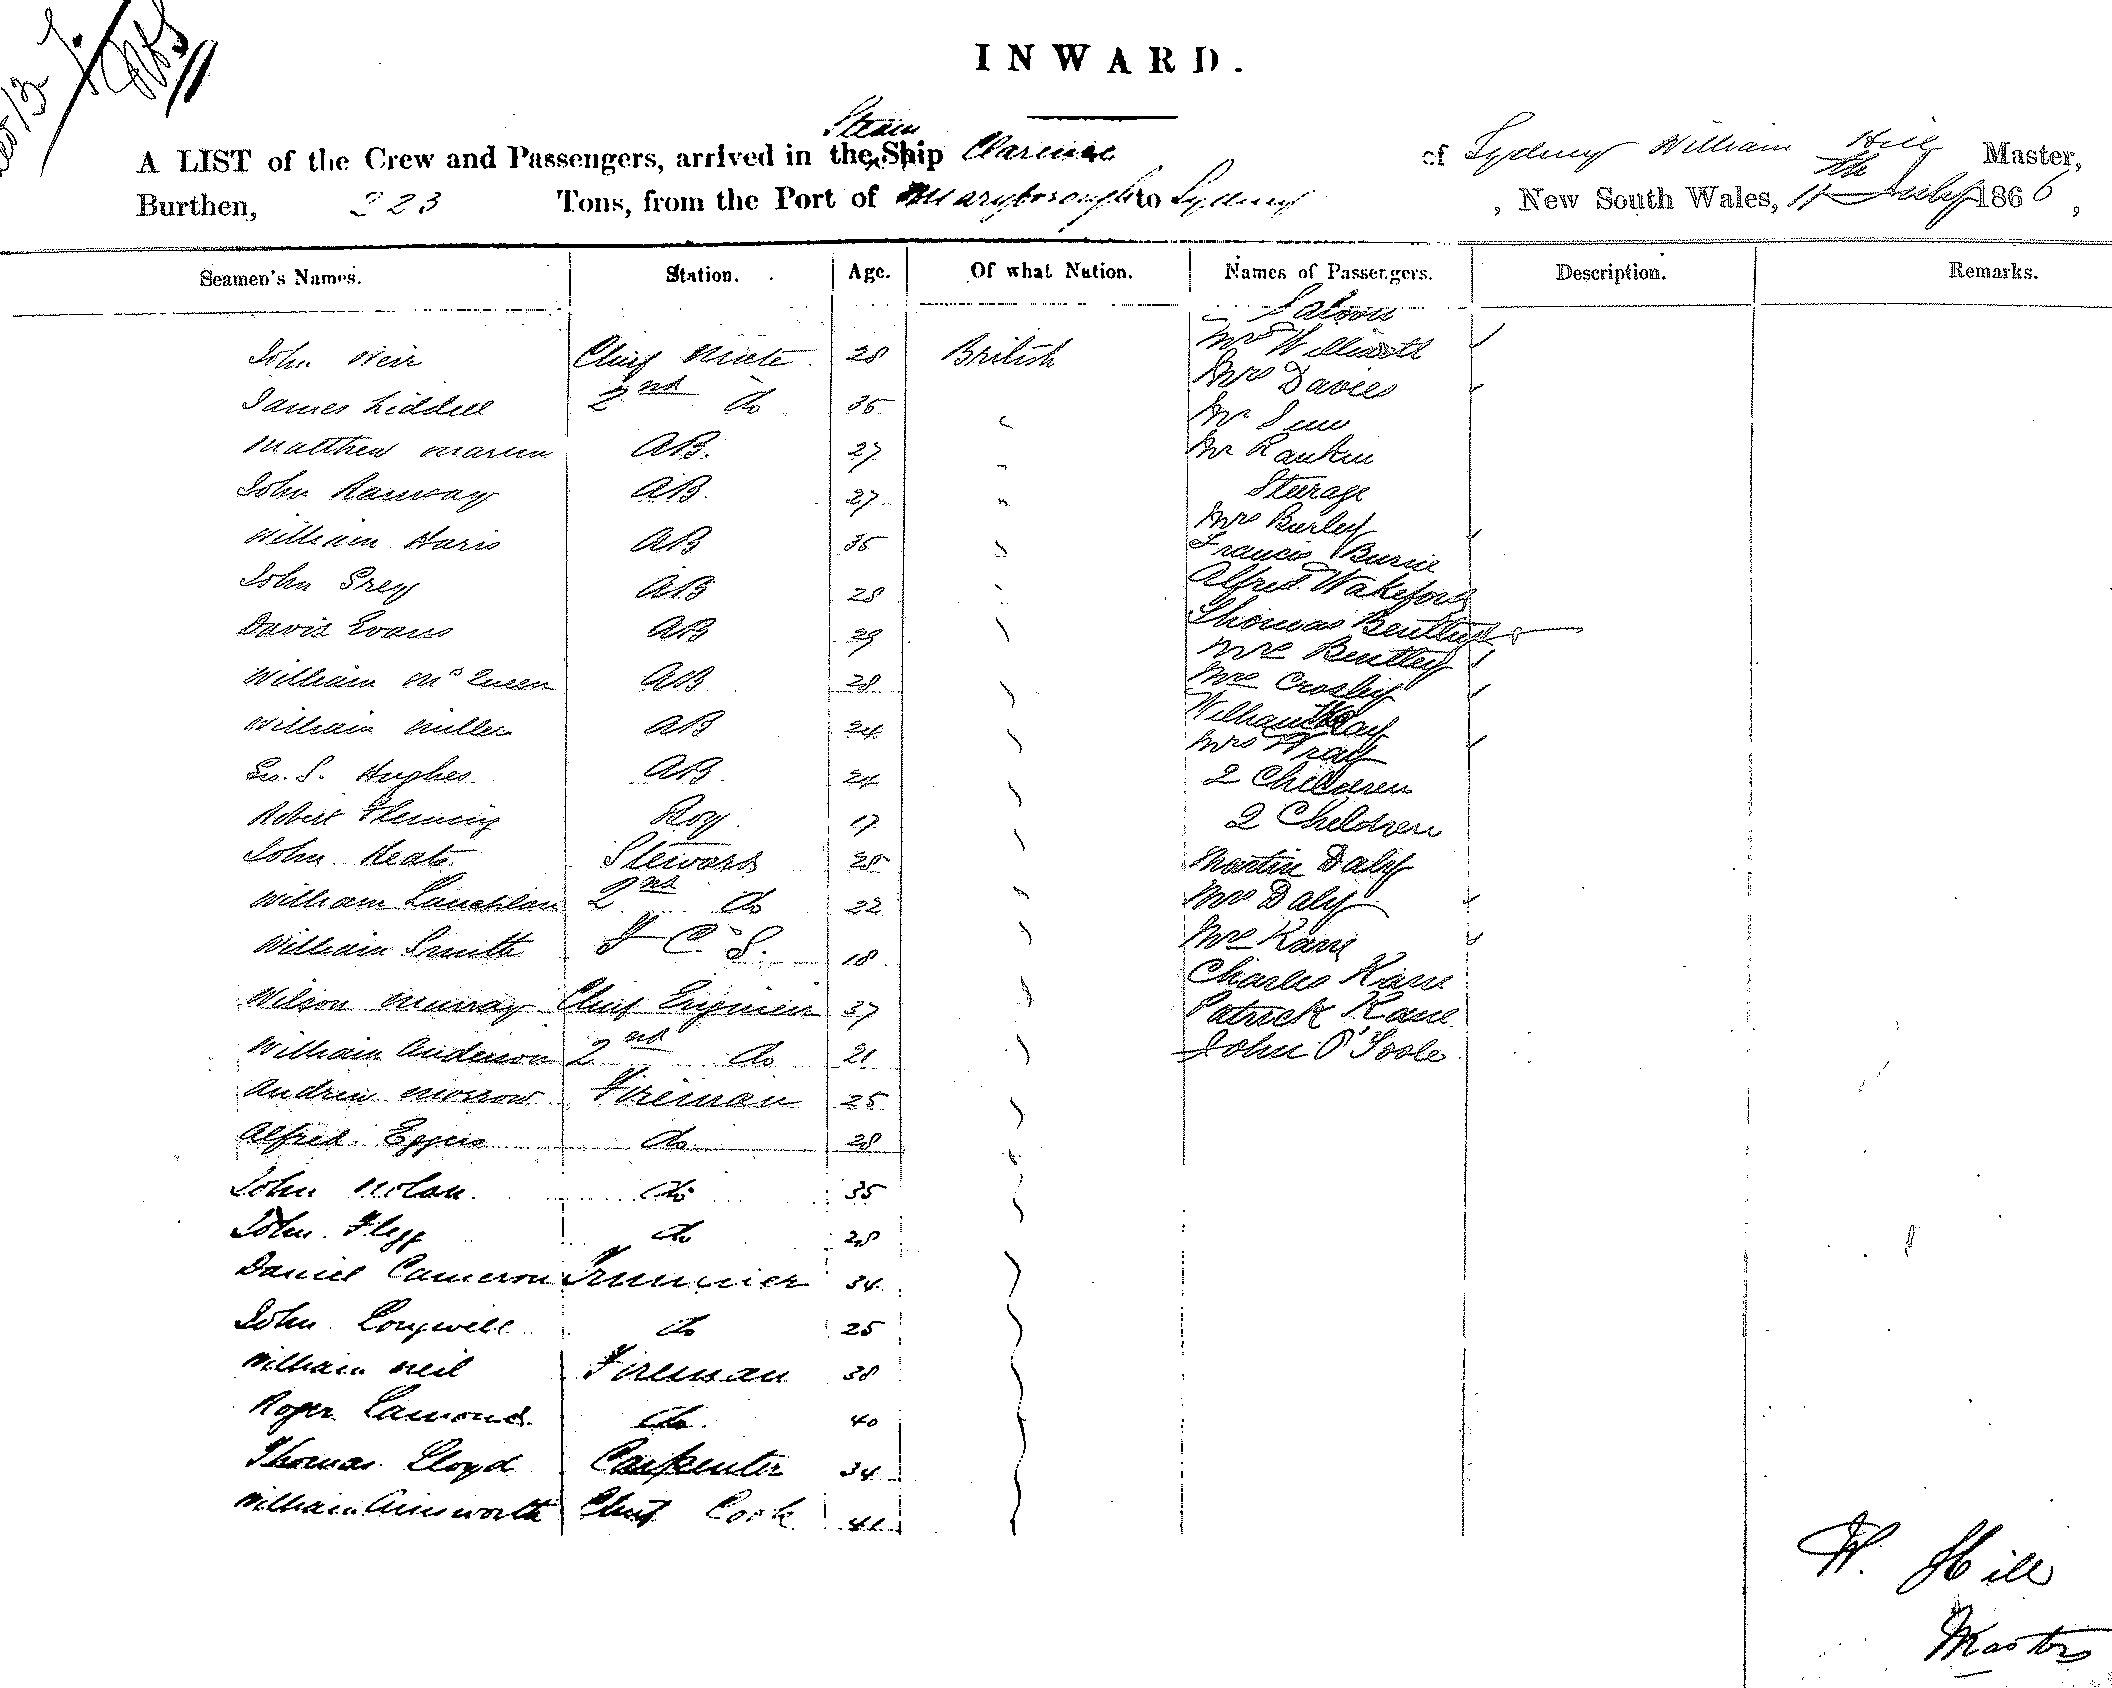 INWARD.
Steam
A LIST of the Crew and Passengers, arrived in the Ship Clarence of Sydney William Hill Master,
Burthen, 223 Tons, from the Port of Maryborough to Sydney, New South Wales, 11th July 1866,
Seamen's Names. Station. Age. Of what Nation. Names of Passengers. Description. Remarks.
Saloon
John Weir Chief Mate 28 British
James Liddell 2nd do 36
Matthew AB. 27
John Ramsay AB. 27
William Haris AB 36
John Grey AB 28
David Evans AB 29
William McQueen AB 28
William Miller AB 24
Geo. S. Hughes AB 24
Robert Fleming Boy 17
John Keats Steward 28
William Lauchlan 2nd do 22
William Smith F C S. 18
Wilson Murray Chief Engineer 37
William Anderson 2nd do 21
Andrew Morrow Fireman 25
Alfred Eggers do 28
John Nolan do 35
John Flegg do 28
Daniel Cameron Trimmer 34
John Longwill do 25
William Neil Fireman 38
Roger Lamond do 40
Thomas Lloyd Carpenter 34
William Ainsworth Chief Cook 41
Mr
Mrs Davies
Mr Sim
Mr Rankin
Steerage
Mrs Burley
Francis Burnie
Alfred Wakeford
Thomas Bentley
Mrs Bentley
Mrs Crosley
William Wray
Mrs Wray
2 Children
2 Children
Martin Daly
Mrs Daly
Mrs Kane
Charles Kane
Patrick Kane
John O'Toole
W. Hill
Master